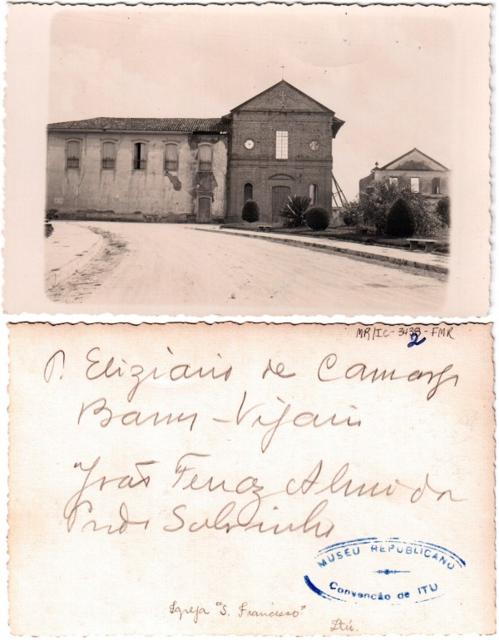 MR/IC-3138-FMR
2
P. Eliziario de Camargo
Barros - Vigario
João Ferraz Almeida
Prado Sobrinho
MUSEU REPUBLICANO
Convenção de ITU
Igreja "S. Francisco"
Itú.